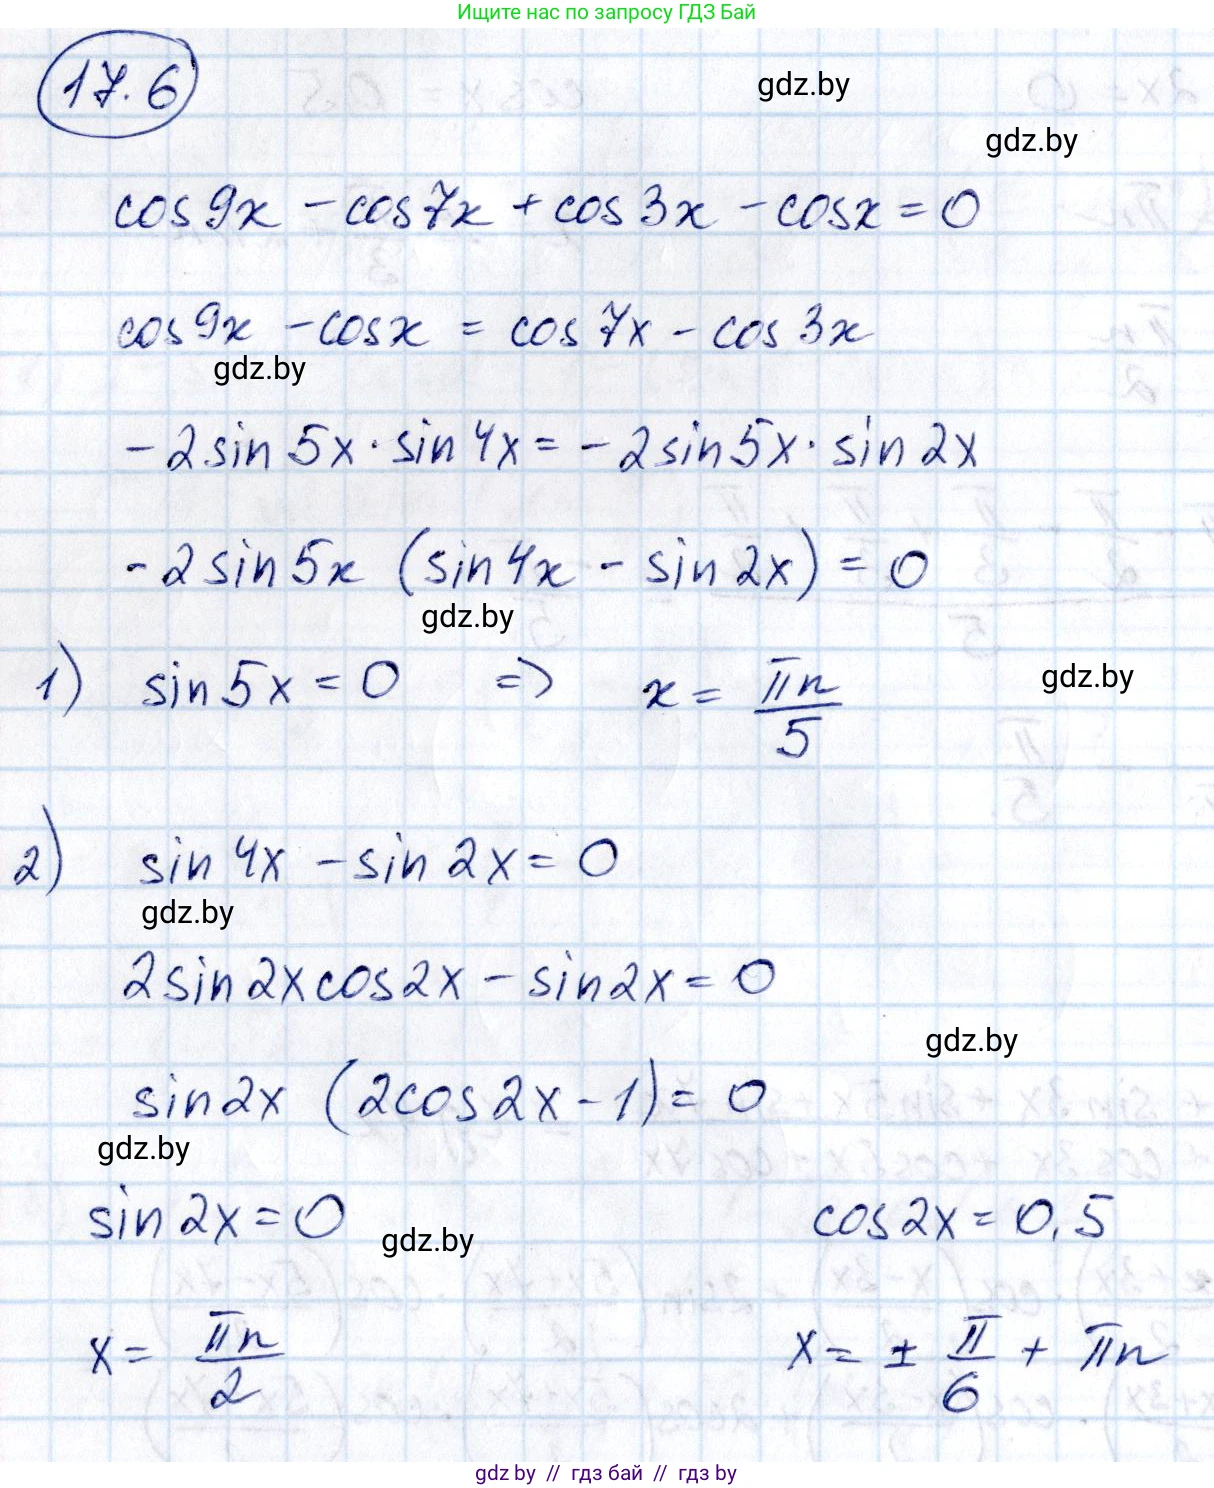 Ищите нас по запросу ГДЗ Бай
17.6
gdz.by
gdz.by
cos9x - cos7x + cos3x - cosx = 0
cos9x - cosx = cos7x - cos3x
gdz.by
-2sin5x · sin4x = -2sin5x · sin2x
-2sin5x (sin4x - sin2x) = 0
gdz.by
1) sin5x = 0 => x = πn/5
gdz.by
2) sin4x - sin2x = 0
gdz.by
2sin2xcos2x - sin2x = 0
gdz.by
sin2x (2cos2x - 1) = 0
gdz.by
sin2x = 0 cos2x = 0,5
gdz.by
x = πn/2 x = ± π/6 + πn
gdz by // гдз бай // гдз by